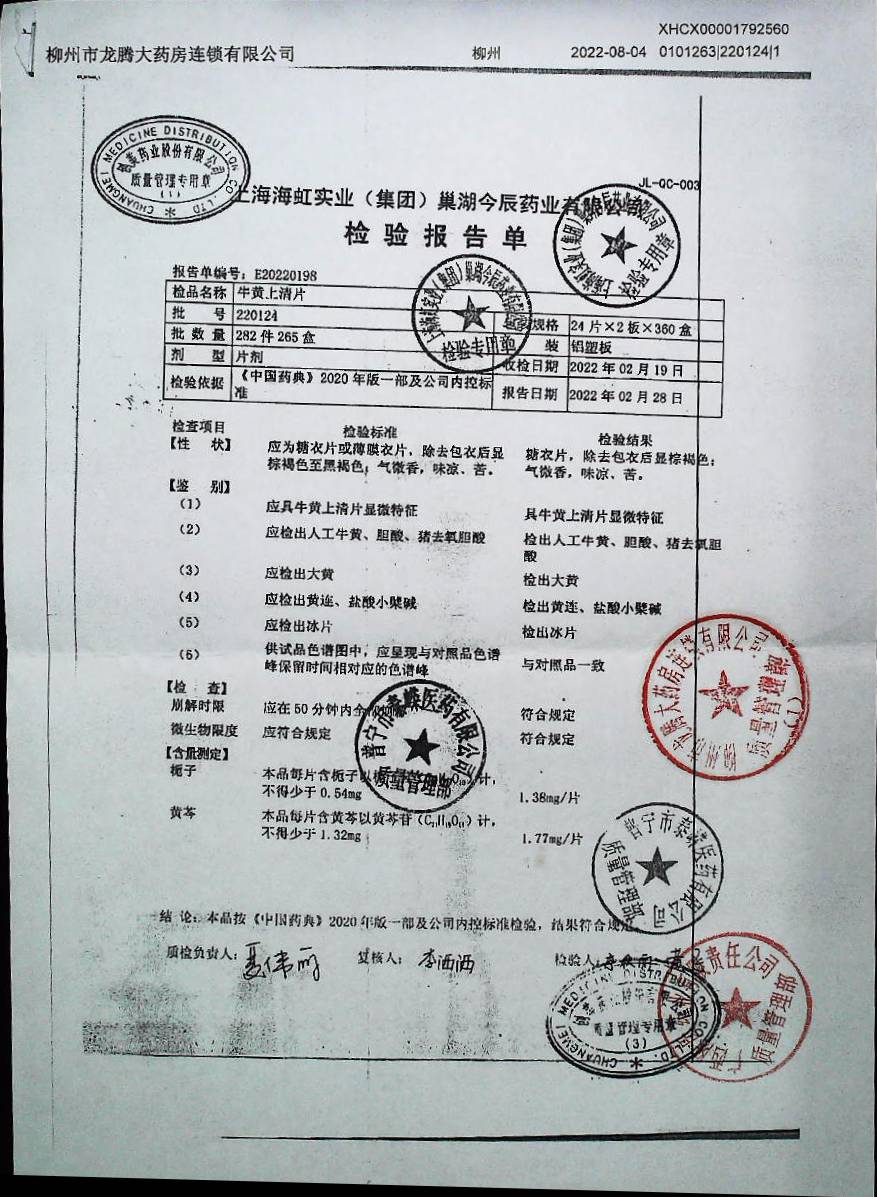 XHCX00001792560
柳州市龙腾大药房连锁有限公司 柳州 2022-08-04 0101263|220124|1
CHUANGMEI MEDICINE DISTRIBUTION CO.,LTD
美药业股份有限公司
质量管理专用章
(1)
JL-QC-003
上海海虹实业（集团）巢湖今辰药业有限公司
检验报告单
报告单编号：E20220198
检品名称 牛黄上清片
批 号 220124 规格 24片×2板×360盒
批数量 282件265盒 装 铝塑板
剂 型 片剂 收检日期 2022年02月19日
检验依据 《中国药典》2020年版一部及公司内控标准 报告日期 2022年02月28日
检验专用章
检验专用章
检查项目 检验标准 检验结果
【性 状】 应为糖衣片或薄膜衣片，除去包衣后显 糖衣片，除去包衣后显棕褐色；
棕褐色至黑褐色；气微香，味凉、苦。 气微香，味凉、苦。
【鉴 别】
（1） 应具牛黄上清片显微特征 具牛黄上清片显微特征
（2） 应检出人工牛黄、胆酸、猪去氧胆酸 检出人工牛黄、胆酸、猪去氧胆
酸
（3） 应检出大黄 检出大黄
（4） 应检出黄连、盐酸小檗碱 检出黄连、盐酸小檗碱
（5） 应检出冰片 检出冰片
（6） 供试品色谱图中，应呈现与对照品色谱
峰保留时间相对应的色谱峰 与对照品一致
【检 查】
崩解时限 应在50分钟内全 符合规定
微生物限度 应符合规定 符合规定
【含量测定】
栀子 本品每片含栀子以 计，
不得少于0.54mg 1.38mg/片
黄芩 本品每片含黄芩以黄芩苷（C₂₁H₁₈O₁₁）计，
不得少于1.32mg 1.77mg/片
普宁市泰 医药有限公司
质量管理部
龙腾大药房连锁有限公司
质量管理
(1)
普宁市泰 医药有限公司
质量管理部
结论：本品按《中国药典》2020年版一部及公司内控标准检验，结果符合规定
质检负责人： 聂伟丽 复核人： 李洒洒 检验人：
CHUANGMEI MEDICINE DISTRIBUTION CO.,LTD.
(3)
责任公司
质量管理